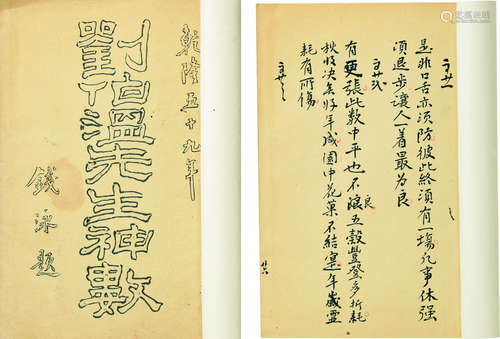 乾隆五十九年
劉伯溫先生神數
錢泳題
是非口舌亦須防彼此終須有一塲凡事休强
須退步讓人一着最為良
有更張此数中平也不良五穀豐登多折耗
秋收决矣好年成園中花菓不結年歲
耗有所傷
廿六